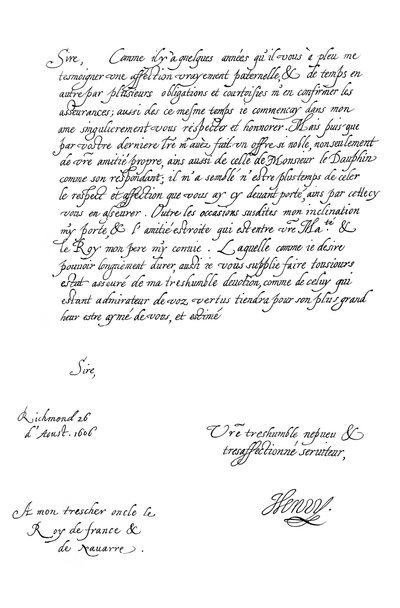 Sire, Comme il y'a quelques années qu'il vous à pleu me
tesmoigner vne affection vrayement paternelle, & de temps en
autre par plusieurs obligations et courtoisies m'en confirmer les
asseurances; aussi des ce mesme temps ie commencay dans mon
ame singulierement vous respecter et honnorer. Mais puis que
par vostre derniere l're m'auez fait vn offre si noble, non seulement
de vr̃e amitié propre, ains aussi de celle de Monsieur le Dauphin
comme son respondant; il m'a semblé n'estre plus temps de celer
le respect et affection que vous ay cy deuant porté, ains par cettecy
vous en asseurer. Outre les occasions susdites mon inclination
m'y porte, & l'amitié estroite qui est entre vr̃e Ma.té &
le Roy mon pere m'y conuie. Laquelle comme ie desire
pouuoir longuement durer, aussi ie vous supplie faire tousiours
estat asseuré de ma treshumble deuotion, comme de celuy qui
estant admirateur de voz vertus tiendra pour son plus grand
heur estre aymé de vous, et estimé
Sire,
Richmond 26
d'Aoust. 1606
Vr̃e treshumble nepueu &
tresaffectionné seruiteur,
Henry.
A mon trescher oncle le
Roy de france &
de Nauarre.